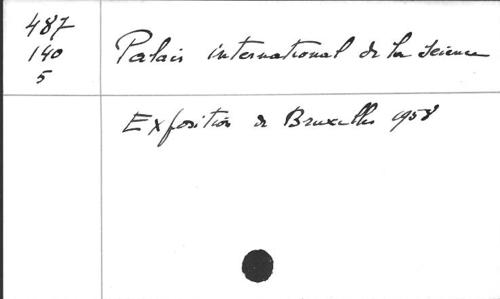 487
140
5
Palais international de la Science
Exposition de Bruxelles 1958